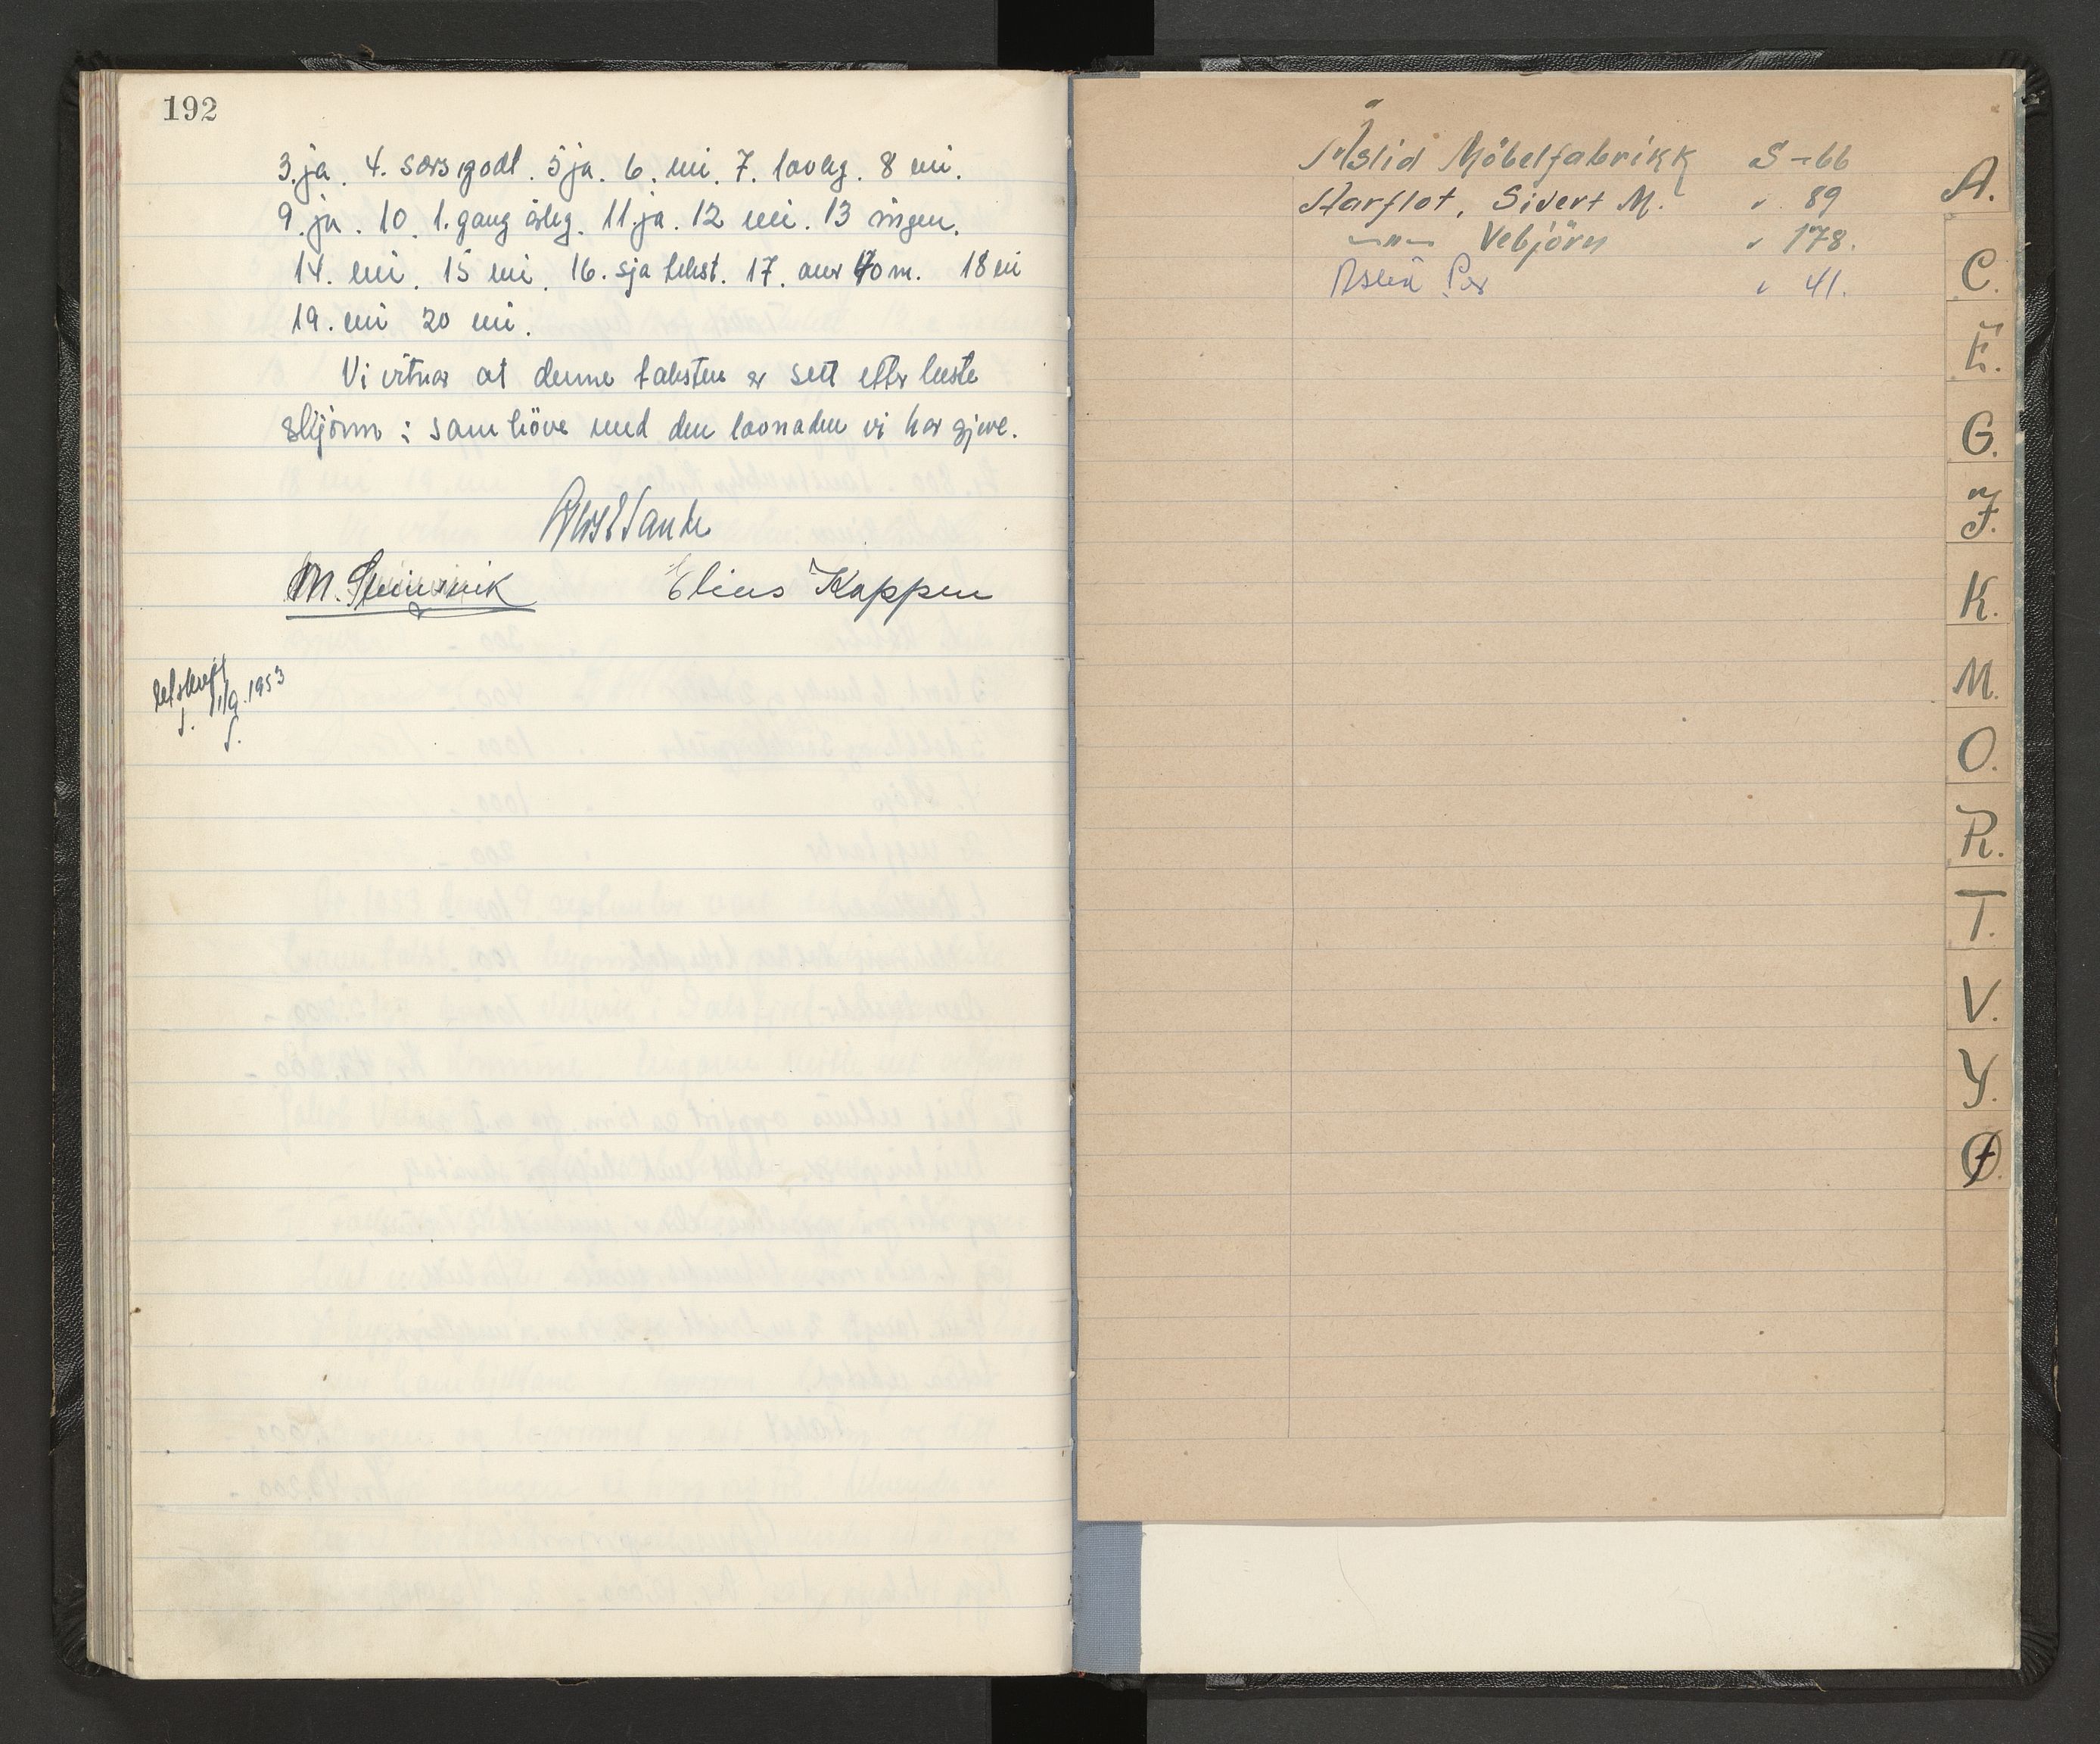 192
3. ja. 4. særs godt. 5 ja. 6. nei. 7. lovleg. 8 nei.
9. ja. 10. 1. gang årleg. 11. ja. 12 nei. 13 ingen.
14. nei. 15 nei. 16. sjå tekst. 17. over 40 m. 18 nei
19. nei 20 nei.
Vi vitnar at denne taksten er sett etter beste
skjønn i samhøve med den lovnaden vi har gjeve.
M. Steinsvik Elias Kappen
Utskrift
1/9. 1953
S.
Åslid Möbelfabrikk S - 66
Aarflot, Sivert M. " 89
—"— Vebjörn " 178.
Per " 41.
A.
C.
E.
G.
J.
K.
M.
O.
R.
T.
V.
Y.
Ø